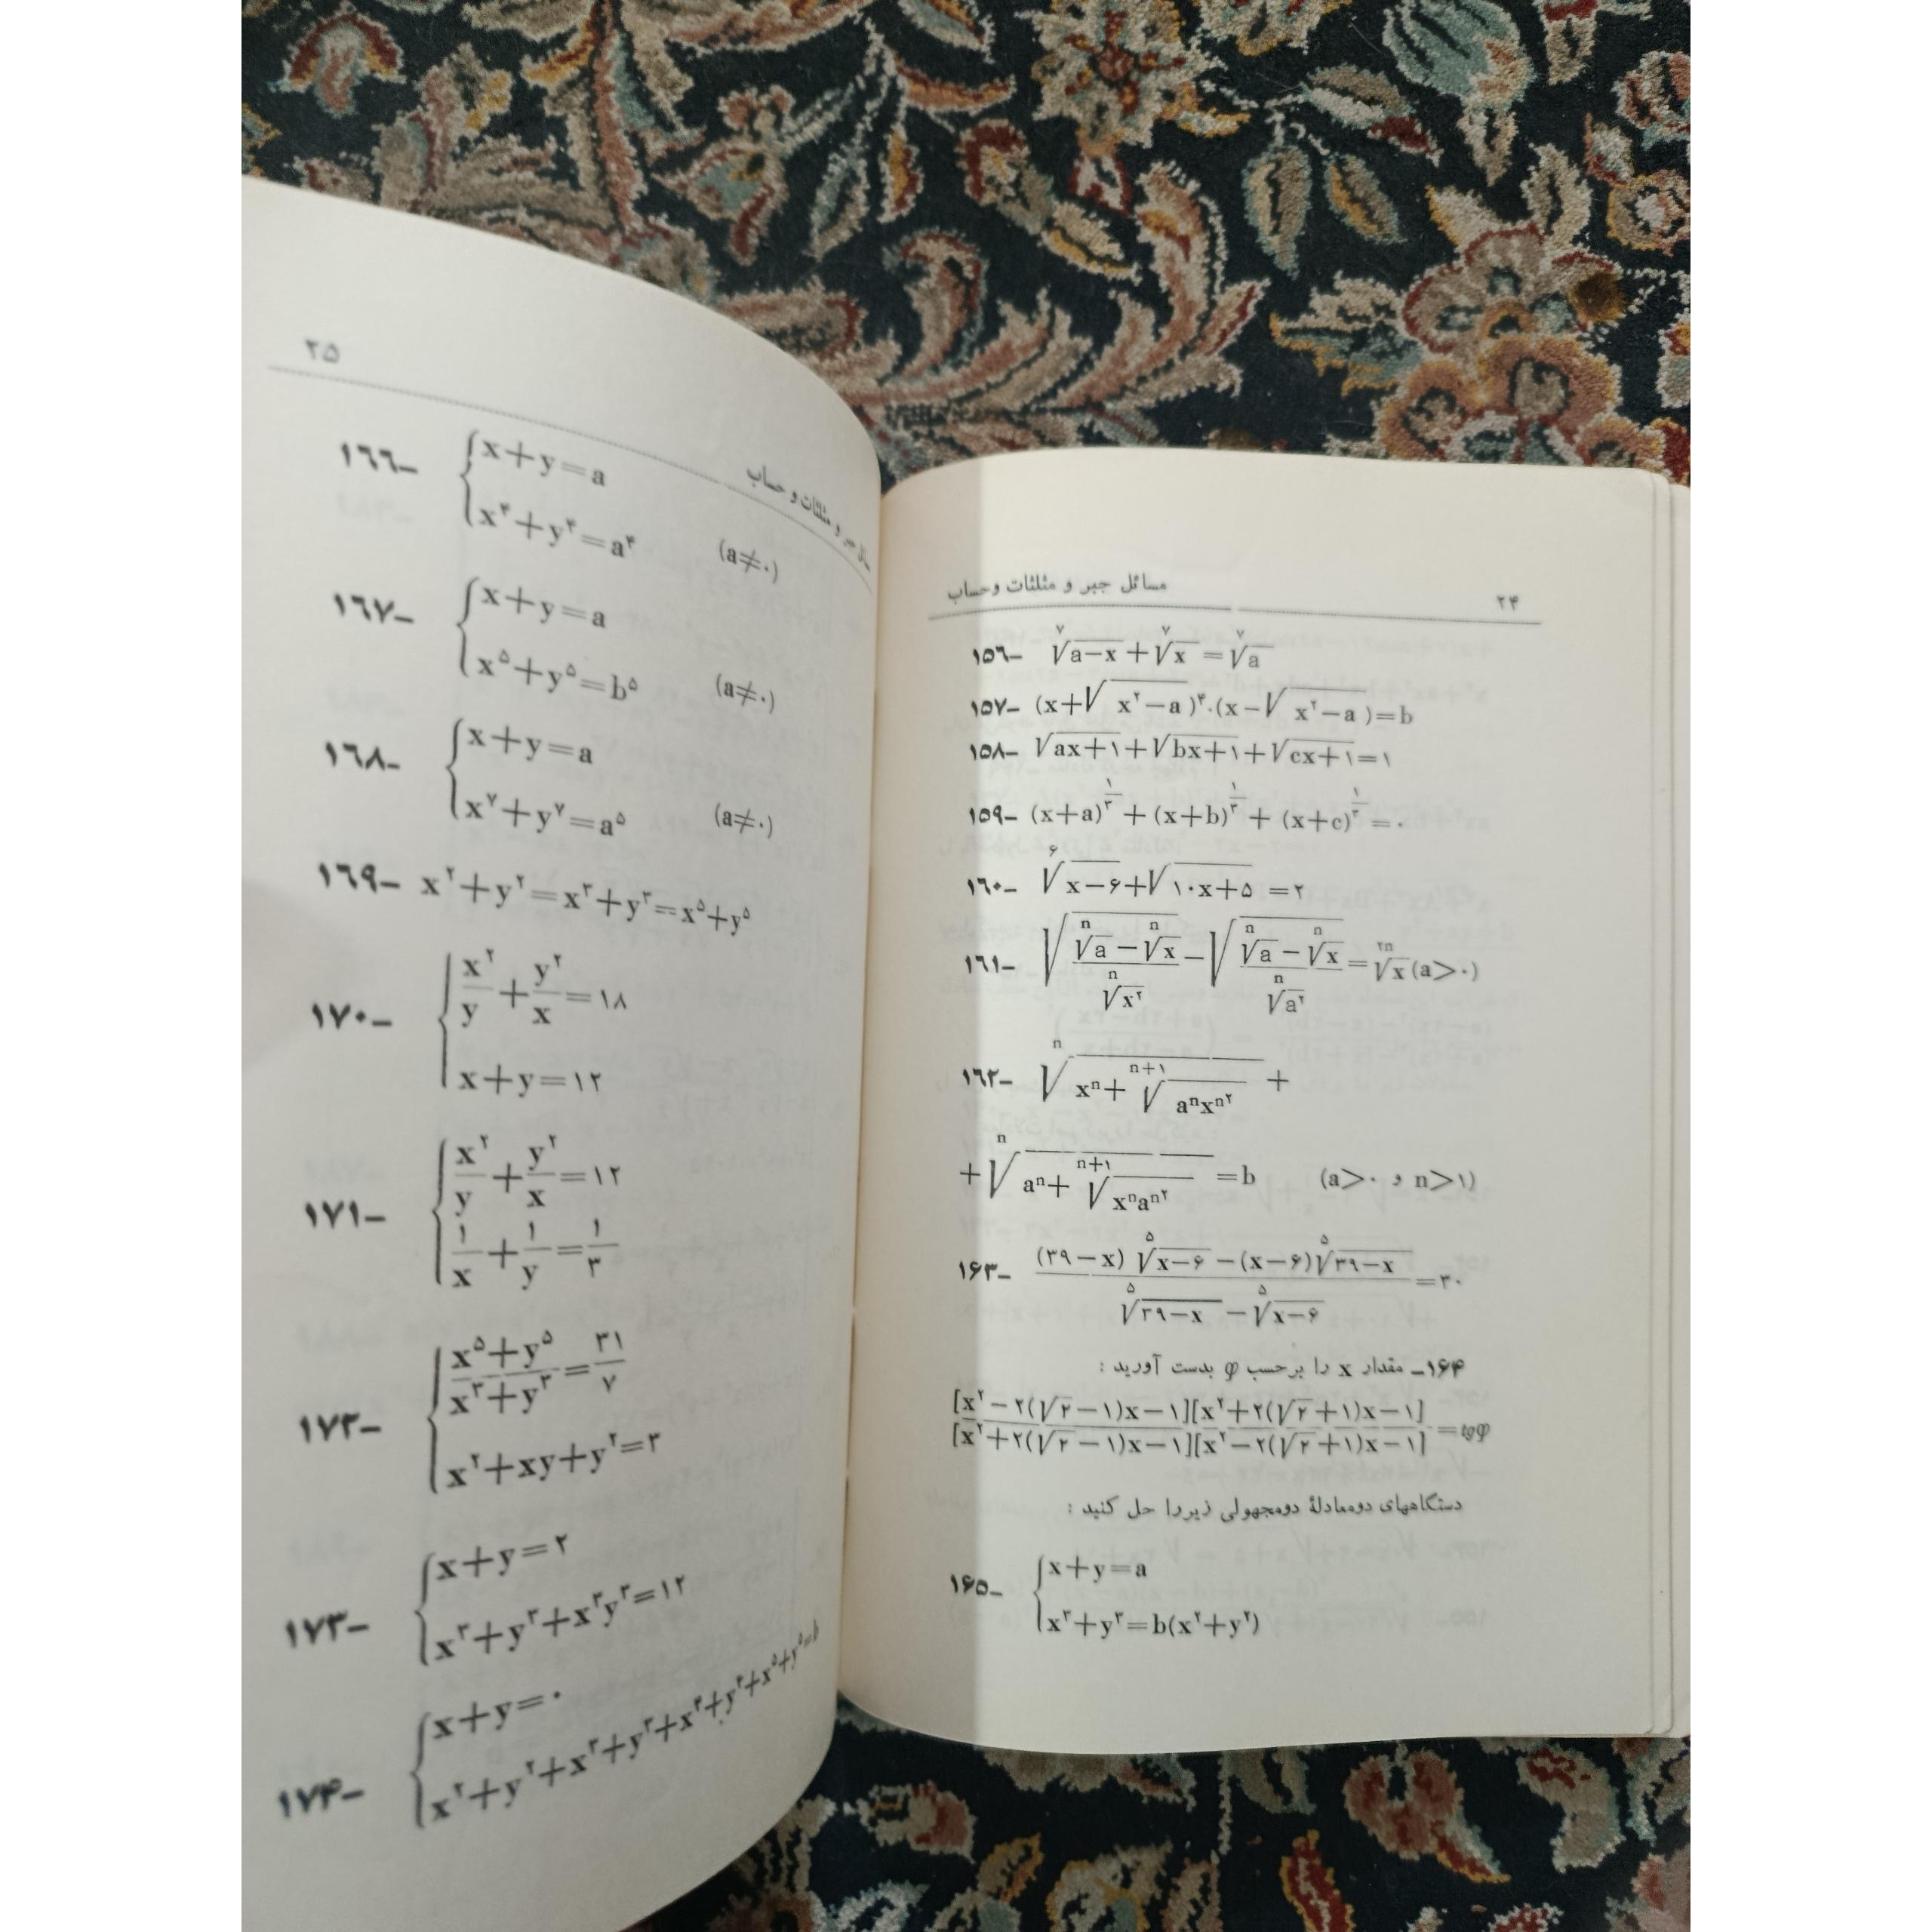 ۲۴ مسائل جبر و مثلثات و حساب
۱۵۶- ⁷√(a−x) + ⁷√x = ⁷√a
۱۵۷- (x+√(x²−a))⁴.(x−√(x²−a))=b
۱۵۸- √(ax+۱)+√(bx+۱)+√(cx+۱)=۱
۱۵۹- (x+a)^(۱/۳) + (x+b)^(۱/۳) + (x+c)^(۱/۳) = ۰
۱۶۰- ⁶√(x−۶)+√(۱۰x+۵) = ۲
۱۶۱- √((ⁿ√a − ⁿ√x)/ⁿ√x²) − √((ⁿ√a − ⁿ√x)/ⁿ√a²) = ²ⁿ√x (a>۰)
۱۶۲- ⁿ√(xⁿ + ⁿ⁺¹√(aⁿx^(n²))) +
+ ⁿ√(aⁿ + ⁿ⁺¹√(xⁿa^(n²))) = b (a>۰ و n>۱)
۱۶۳- ((۳۹−x) ⁵√(x−۶) − (x−۶)⁵√(۳۹−x))/(⁵√(۳۹−x) − ⁵√(x−۶)) = ۳۰
۱۶۴- مقدار x را برحسب φ بدست آورید :
[x²−۲(√۲−۱)x−۱][x²+۲(√۲+۱)x−۱]/[x²+۲(√۲−۱)x−۱][x²−۲(√۲+۱)x−۱] = tgφ
دستگاههای دومعادلهٔ دومجهولی زیررا حل کنید :
۱۶۵- x+y=a
x³+y³=b(x²+y²)
مسائل جبر و مثلثات و حساب ۲۵
۱۶۶- x+y=a
x⁴+y⁴=a⁴ (a≠۰)
۱۶۷- x+y=a
x⁵+y⁵=b⁵ (a≠۰)
۱۶۸- x+y=a
x⁷+y⁷=a⁵ (a≠۰)
۱۶۹- x²+y²=x³+y³=x⁵+y⁵
۱۷۰- x²/y + y²/x = ۱۸
x+y=۱۲
۱۷۱- x²/y + y²/x = ۱۲
۱/x + ۱/y = ۱/۳
۱۷۲- (x⁵+y⁵)/(x³+y³) = ۳۱/۷
x²+xy+y²=۳
۱۷۳- x+y=۲
x³+y³+x³y³=۱۲
۱۷۴- x+y=۰
x²+y²+x³+y³+x⁴+y⁴+x⁵+y⁵=b